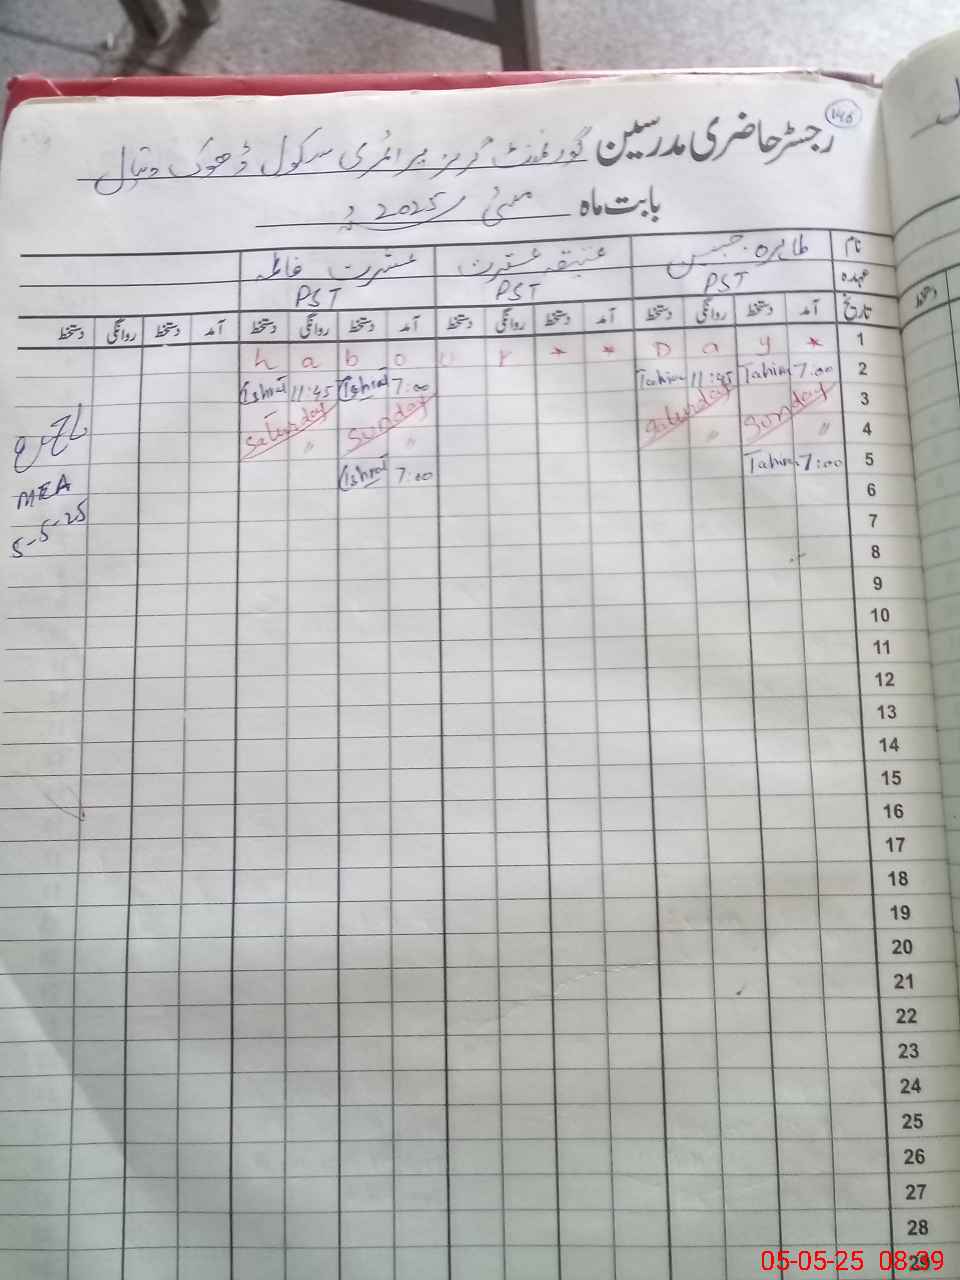 146
رجسٹر حاضری مدرسین گورنمنٹ گرلز پرائمری سکول ڈھوک
بابت ماہ مئی 2025ء
نام طاہرہ جبیں عنیقہ عشرت عشرت فاطمہ
عہدہ PST PST PST
تاریخ آمد دستخط روانگی دستخط آمد دستخط روانگی دستخط آمد دستخط روانگی دستخط آمد دستخط روانگی دستخط
1 L a b o u r * * D a y *
2 7:00 Tahira 11:45 Tahira 7:00 Ishrat 11:45 Ishrat
3 Saturday Sunday Saturday Sunday
4 〃 〃 〃 〃
5 7:00 Tahira 7:00 Ishrat
MEA
5-5-25
6
7
8
9
10
11
12
13
14
15
16
17
18
19
20
21
22
23
24
25
26
27
28
29
دستخط
05-05-25 08:39